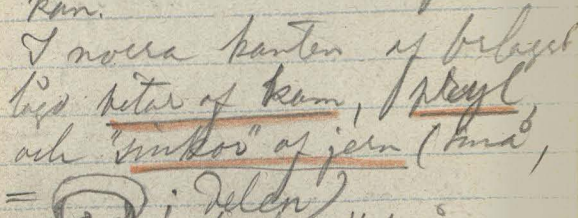 kan.
I norra kanten af belaget
lågo bitar af kam, pryl,
och "sinkor" af jern (små,
= i delen)